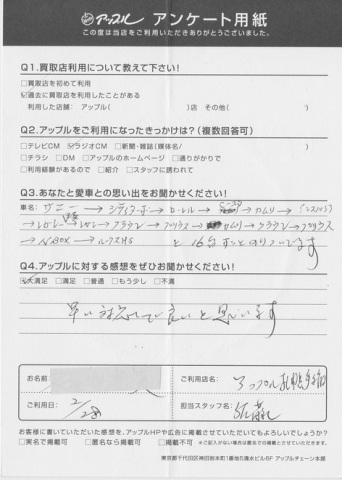 アップル アンケート用紙
この度は当店をご利用いただきありがとうございました。
Q1.買取店利用について教えて下さい!
□買取店を初めて利用
☑過去に買取店を利用したことがある
利用した店舗: アップル( )店 その他( )
Q2.アップルをご利用になったきっかけは?(複数回答可)
□テレビCM ☑ラジオCM □新聞・雑誌(媒体名/ )
□チラシ □DM □アップルのホームページ □通りがかりで
□利用経験があるので □紹介 □スタッフに誘われて
Q3.あなたと愛車との思い出をお聞かせください!
車名: サニー → シティターボ → → カムリ →
→ → クラウン → プリウス → カムリ → クラウン → プリウス
→ NBOX → ルークスHS と 16台 のっています
Q4.アップルに対する感想をぜひお聞かせください!
☑大満足 □満足 □普通 □もう少し □不満
早い対応で良いと思います
お名前
ご利用店名: アップル
ご利用日: 2/28
担当スタッフ名: 佐藤
お客様に書いていただいた感想を、アップルHPや広告に掲載させていただいてもよろしいでしょうか?
□実名で掲載可 □匿名なら掲載可 □掲載不可 ※ご記入がない場合は匿名での掲載とさせていただきます。
東京都千代田区神田岩本町1番地5清水ビル6F アップルチェーン本部